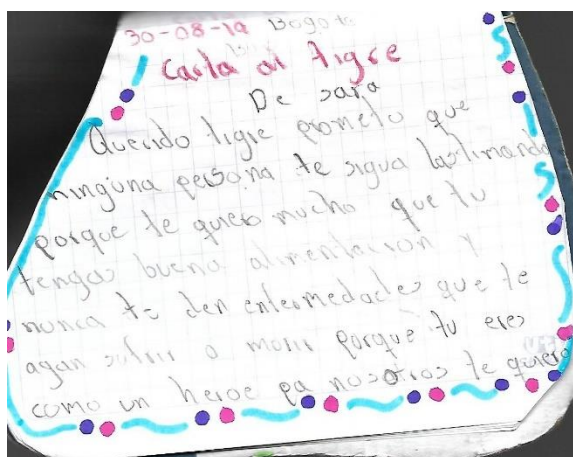 30-08-19 Bogota
Carta al tigre
De sara
Querido tigre prometo que
ninguna persona te sigua lastimando
porque te quiero mucho que tu
tengas buena alimentacion y
nunca te den enfermedades que te
agan sufrir o morir porque tu eres
como un heroe pa nosotros te quiero